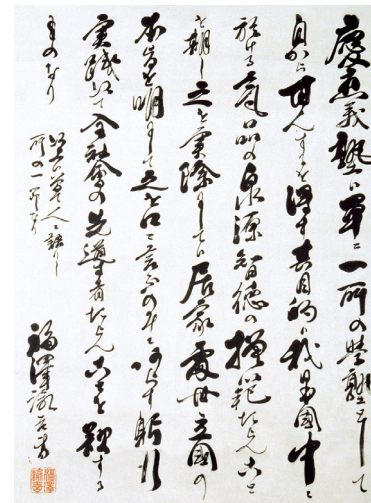 慶應義塾ハ單ニ一所の學塾として
自から甘んするを得す其目的ハ我日本國中ニ
於ける氣品の泉源智徳の模範たらんこと
を期し之を実際にしてハ居家處世立國の
本旨を明にして之を口ニ言ふのみニあらす躬行
実踐以て全社會の先導者たらんことを欲する
ものなり
以上ハ曾て人ニ語りし
所の一節なり
福澤諭吉書
福澤
諭吉